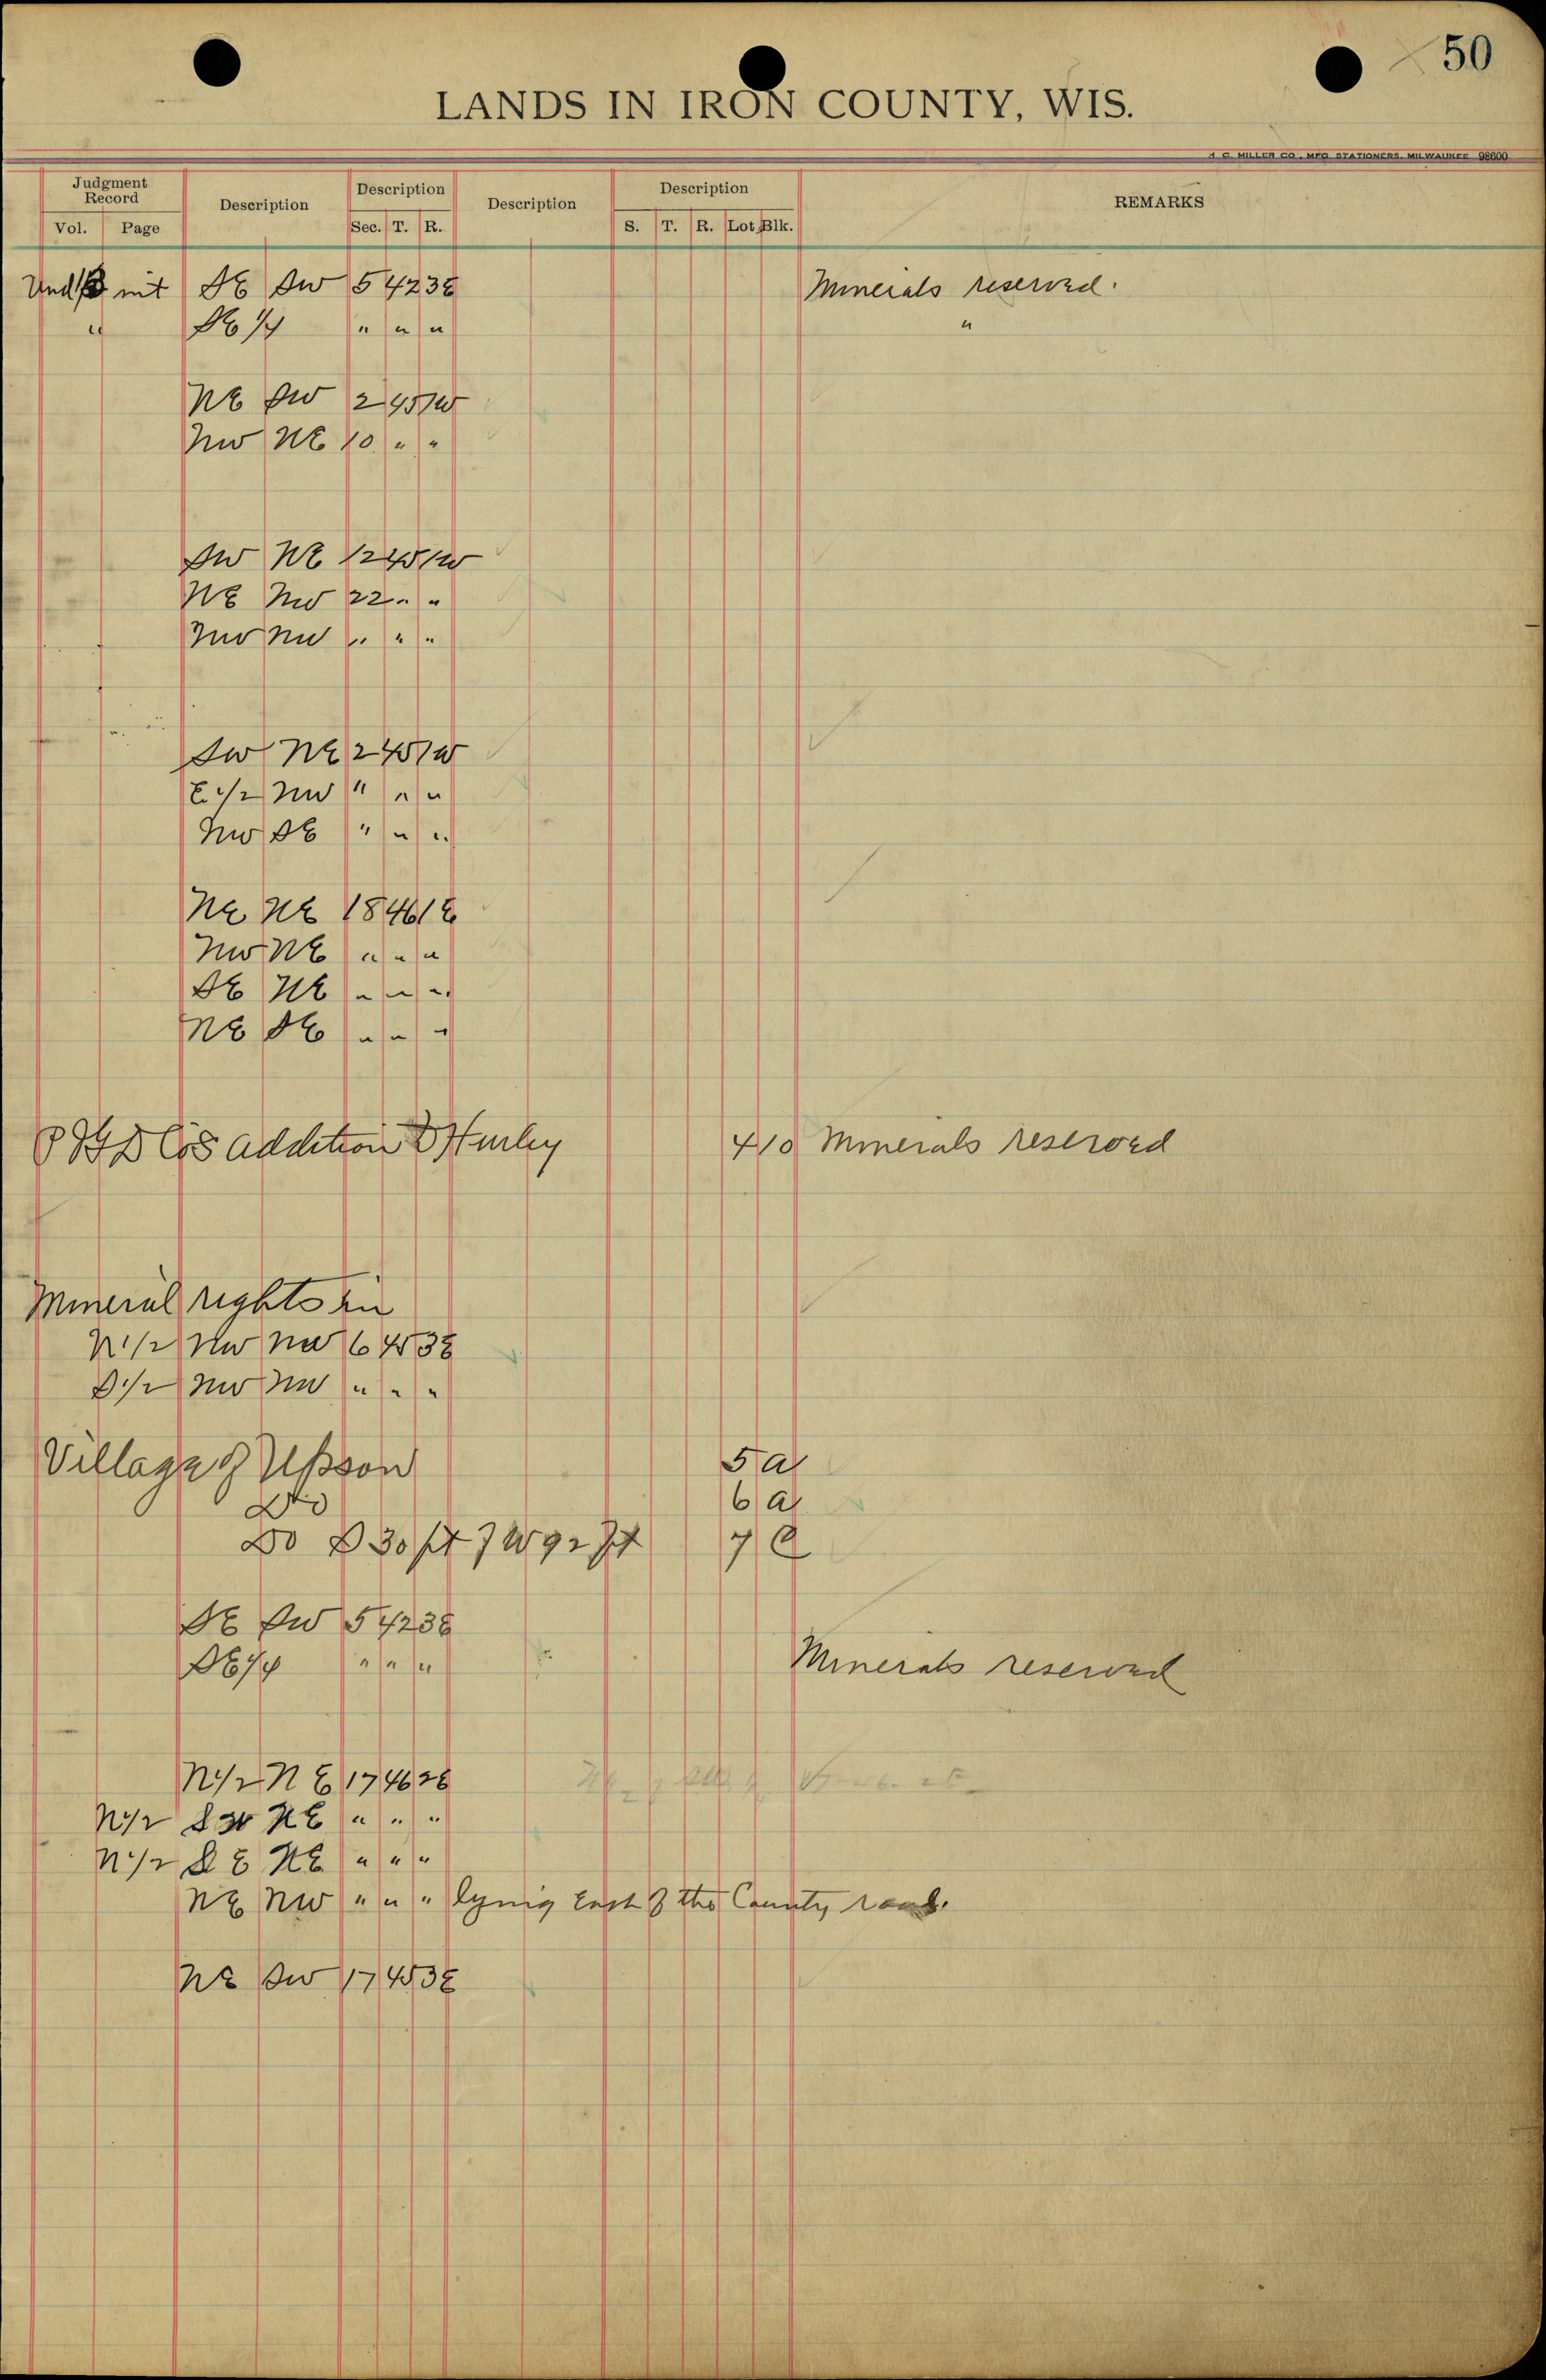 50
LANDS IN IRON COUNTY, WIS.
H. C. MILLER CO., MFG. STATIONERS, MILWAUKEE 98600
Judgment Record Description Description Description Description REMARKS
Vol. Page Sec. T. R. S. T. R. Lot Blk.
Und 1/3 int SE SW 5 42 3E Minerals reserved.
" SE 1/4 " " " "
NE SW 2 45 1W
NW NE 10 " "
SW NE 12 45 1W
NE NW 22 " "
NW NW " " "
SW NE 2 45 1W
E 1/2 NW " " "
NW SE " " "
NE NE 18 46 1E
NW NE " " "
SE NE " " "
NE SE " " "
Co's addition Hurley 4 10 Minerals reserved
Mineral rights in
N 1/2 NW NW 6 45 3E
S 1/2 NW NW " " "
Village of Upson 5 A
Do 6 A
Do S 30 ft of W 92 ft 7 C
SE SW 5 42 3E
SE 1/4 " " " Minerals reserved
N 1/2 NE 17 46 2E
N 1/2 SW NE " " "
N 1/2 SE NE " " "
NE NW " " " lying East of the County road.
NE SW 17 45 3E